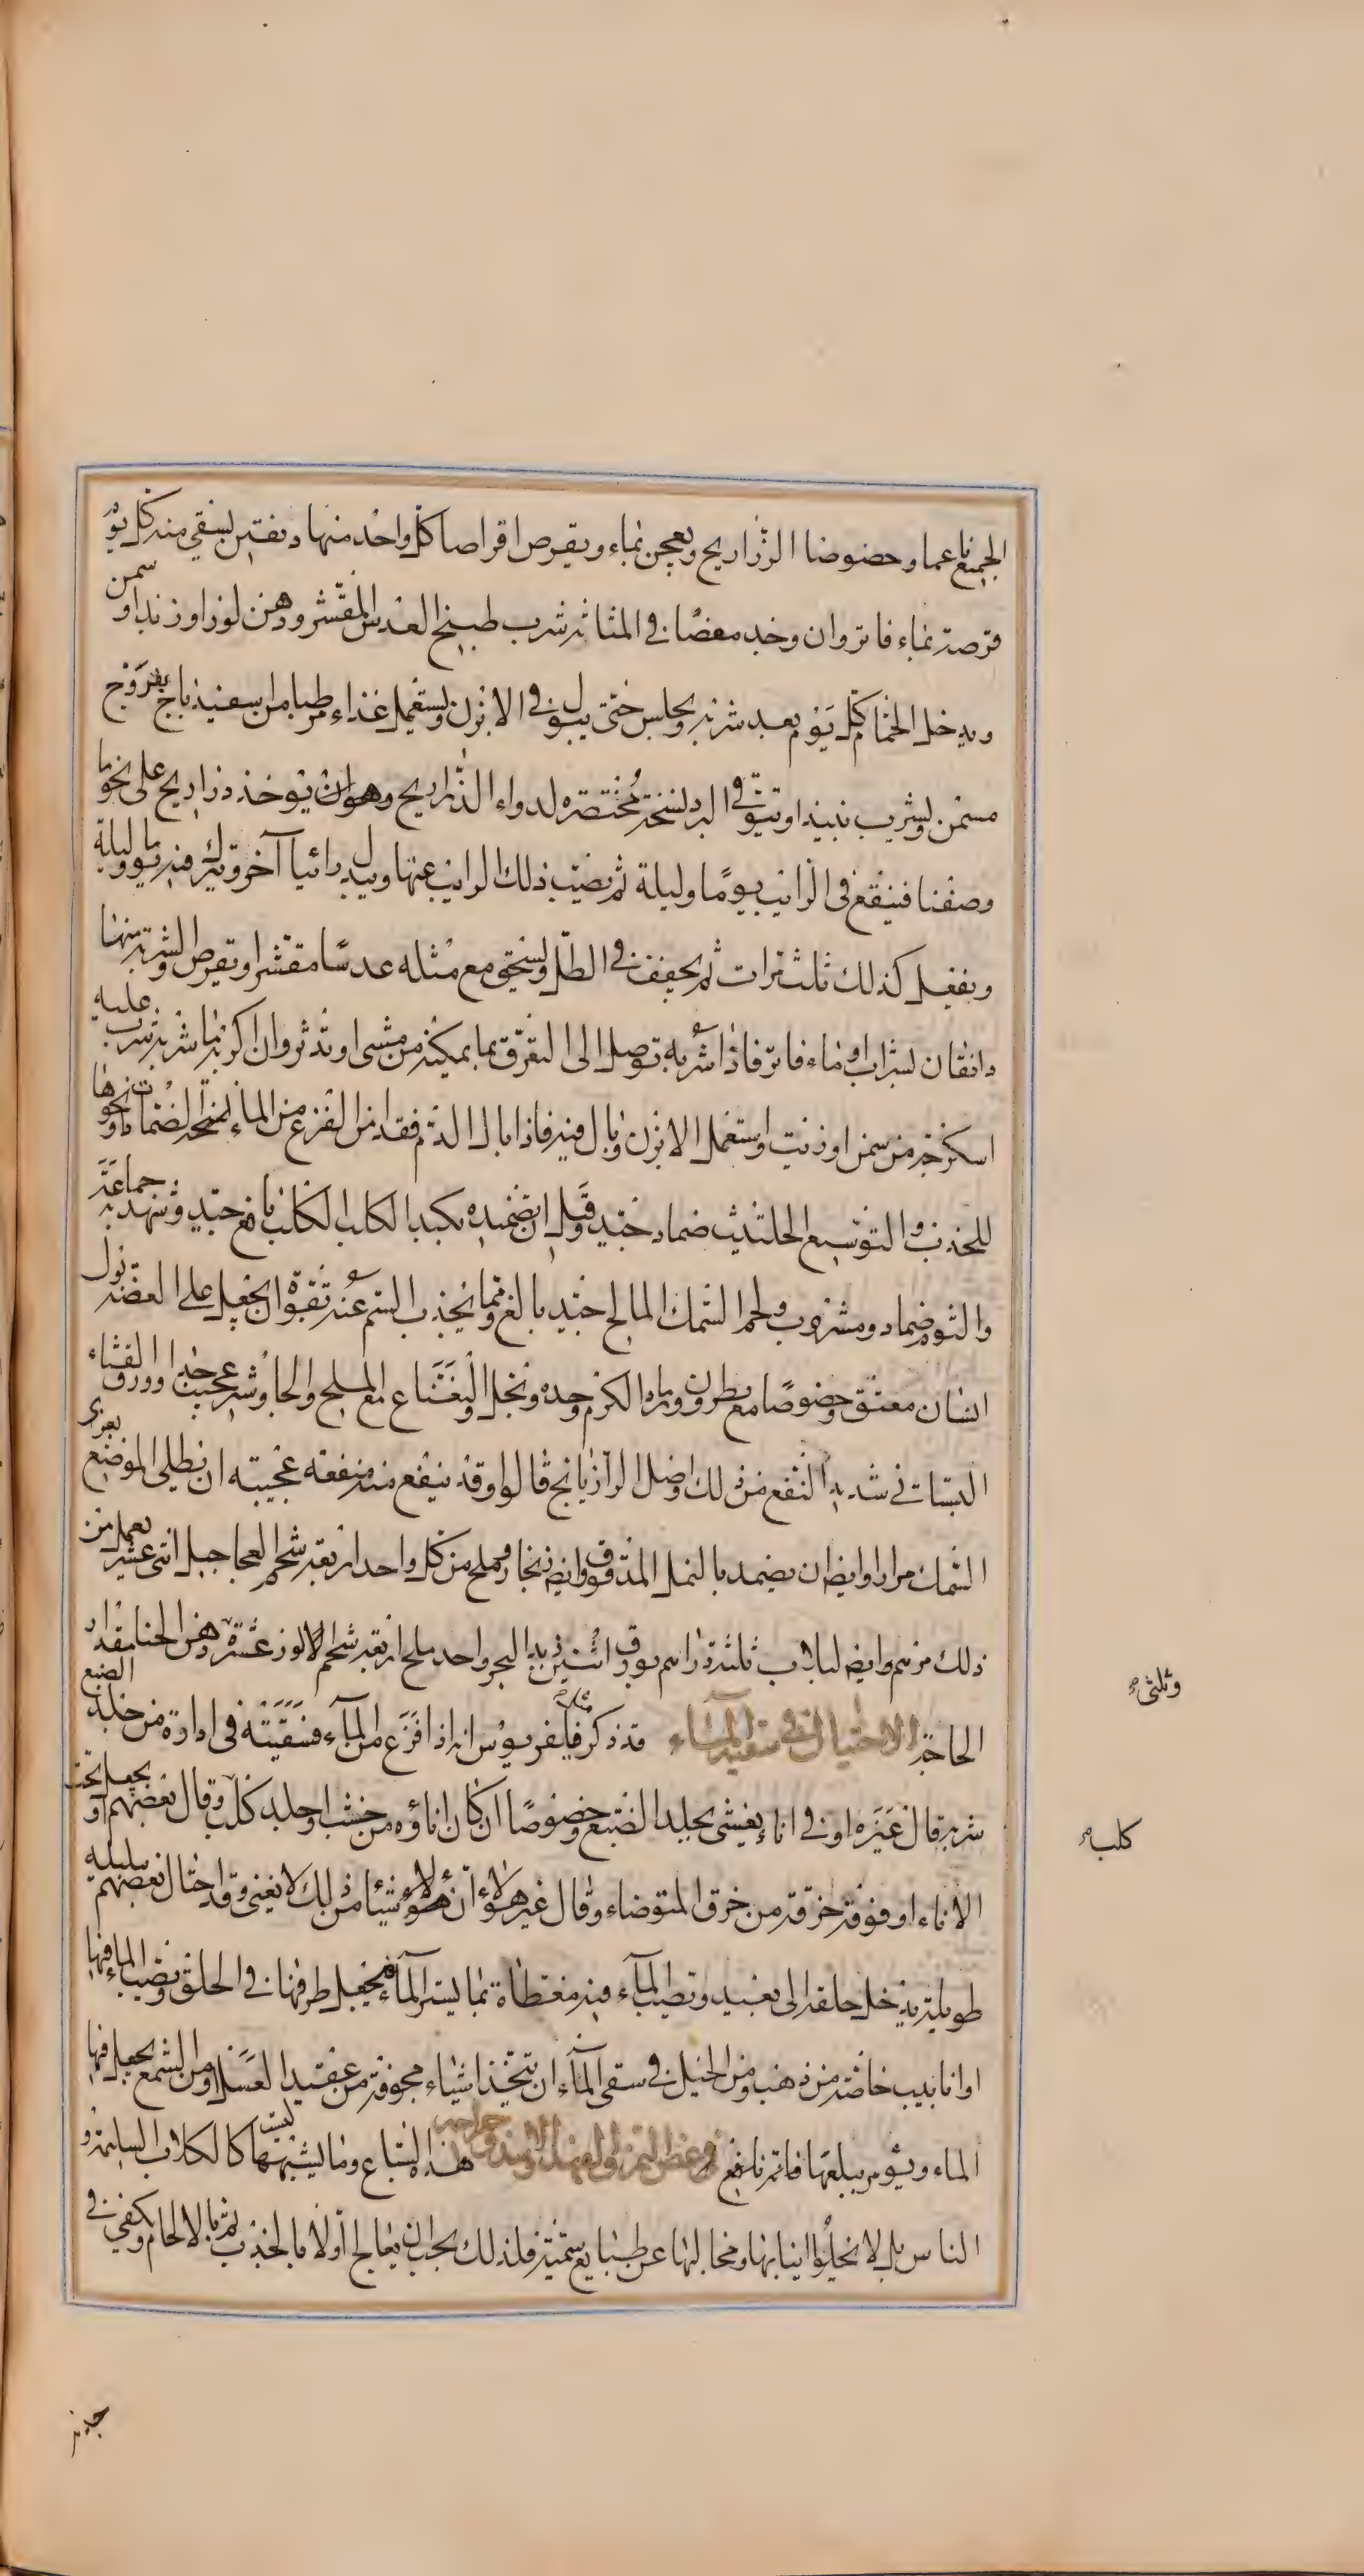 الجميع ناعما وخصوصا الذراريح ويعجن بماء ويقرص اقراصا كل واحد منها دنقين يسقى منه كل يوم
قرصة بماء فاتر وان وجد مغصا في المثانة شرب طبيخ العدس المقشر ودهن لوز او زبد او سمن
ويدخل الحمام كل يوم بعد شربه ويجلس حتى يبول في الابزن ويستعمل غذاء مرطبا من اسفيذباج بفروج
مسمن ويشرب نبيذا ويتوقى البرد نسخة مختصرة لدواء الذراريح وهو ان يؤخذ ذراريح على نحو ما
وصفنا فينقع في الرايب يوما وليلة ثم يصب ذلك الرايب عنها ويبدل رائبا آخر ويترك فيه يوما وليلة
ويفعل كذلك ثلث مرات ثم يجفف في الظل ويسحق مع مثله عدسا مقشرا ويقرص والشربة منها
دانقان بشراب او ماء فاتر فاذا شربه توصل الى التعرق بما يمكنه من مشى او تدثر وان اكربه ما شربه شرب عليه
اسكرجة من سمن او زيت واستعمل الابزن وبال فيه فاذا بال الدم فقد امن الفزع من الماء نسخة الضمادات ونحوها
للجذب والتوسيع الحلتيت ضماد جيد وقيل ان تضميده بكبد الكلب الكلب نافع جيد وشهد به جماعة
والثوم ضماد ومشروب ولحم السمك المالح جيد بالغ ومما يجذب السم عنه بقوة ان يجعل على العضة بول
انسان معتق وخصوصا مع نطرون ورماد الكرم وحده وبخل والنعناع مع الملح والجاوشير عجيب جدا وورق القثاء
البستاني شديد النفع من ذلك واصل الرازيانج قالوا وقد ينفع منه منفعة عجيبة ان يطلى الموضع بغرى
السمك مرارا وايضا ان يضمد بالنمل المدقوق وايضا زنجار وملح من كل واحد اربعة شحم العجاجيل اثنى عشر يعمل من
ذلك مرهم وايضا لبلاب ثلثة دراهم بورق اثنين زبد البحر واحد ملح اربعة شحم الاوز عشرة دهن الحنا مقدار
الحاجة الاحتيال في سقيه الماء قد ذكر فليغريوس انه اذا فزع من الماء فسقيته في اداوة من جلد الضبع
شربه قال غيره او في اناء يغشى بجلد الضبع وخصوصا ان كان اناؤه من خشب او جلد كلب وقال بعضهم او يجعل تحت
الاناء او فوقه خرقة من خرق المتوضاء وقال غير هؤلاء ان هؤلاء شيئا من ذلك لا يغنى وقد احتال بعضهم ببلبلة
طويلة يدخل حلقه الى بعيد وتصب الماء فيه مغطاة بما يستر الماء فيجعل طرفها في الحلق ويصب الماء فيها
او انابيب خاصة من ذهب ومن الحيل في سقى الماء ان تتخذ اشياء مجوفة من عقيد العسل ومن الشمع يجعل فيها
الماء ويؤمر ببلعها فانه نافع في عض النمر والفهد والاسد وجراحه هذه السباع وما يشبهها ليست كالكلاب السليمة و
الناس بل لا تخلوا انيابها ومخالبها عن طبايع سمية فلذلك يجب ان يعالج اولا بالجذب ثم بالالحام ويكفى في
وثلثى
كلب